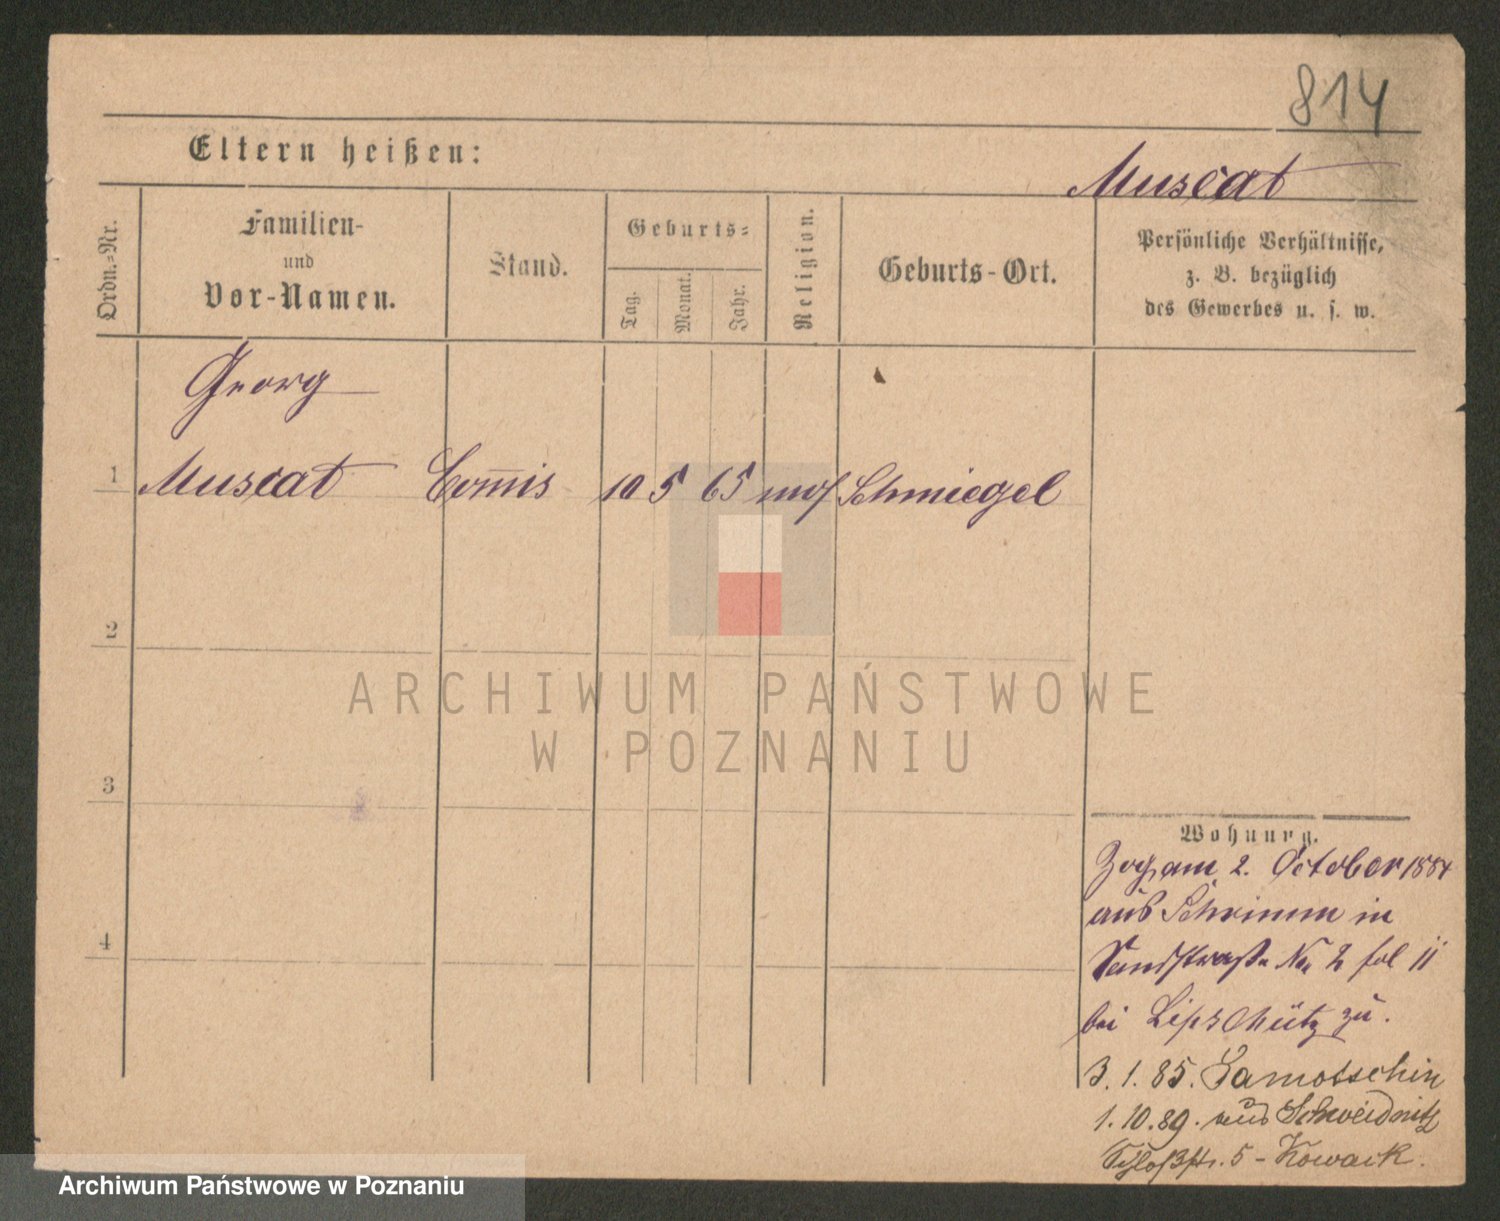 814
Eltern heißen:
Muscat
Ordn.=Nr.
Familien-
und
Vor-Namen.
Stand.
Geburts=
Tag.
Monat.
Jahr.
Religion.
Geburts-Ort.
Persönliche Verhältnisse,
z. B. bezüglich
des Gewerbes u. s. w.
Georg
1 Muscat Com̅is 10 5 65 mos Schmiegel
2
ARCHIWUM PAŃSTWOWE
W POZNANIU
3
Wohnung.
Zog am 2. October 1884
aus Schrimm in
4
Sandstraße No 2 fol 11
bei Lipschütz zu.
3. 1. 85. Samotschin
1. 10. 89. aus Schweidnitz
Schloßstr. 5 - Nowack.
Archiwum Państwowe w Poznaniu